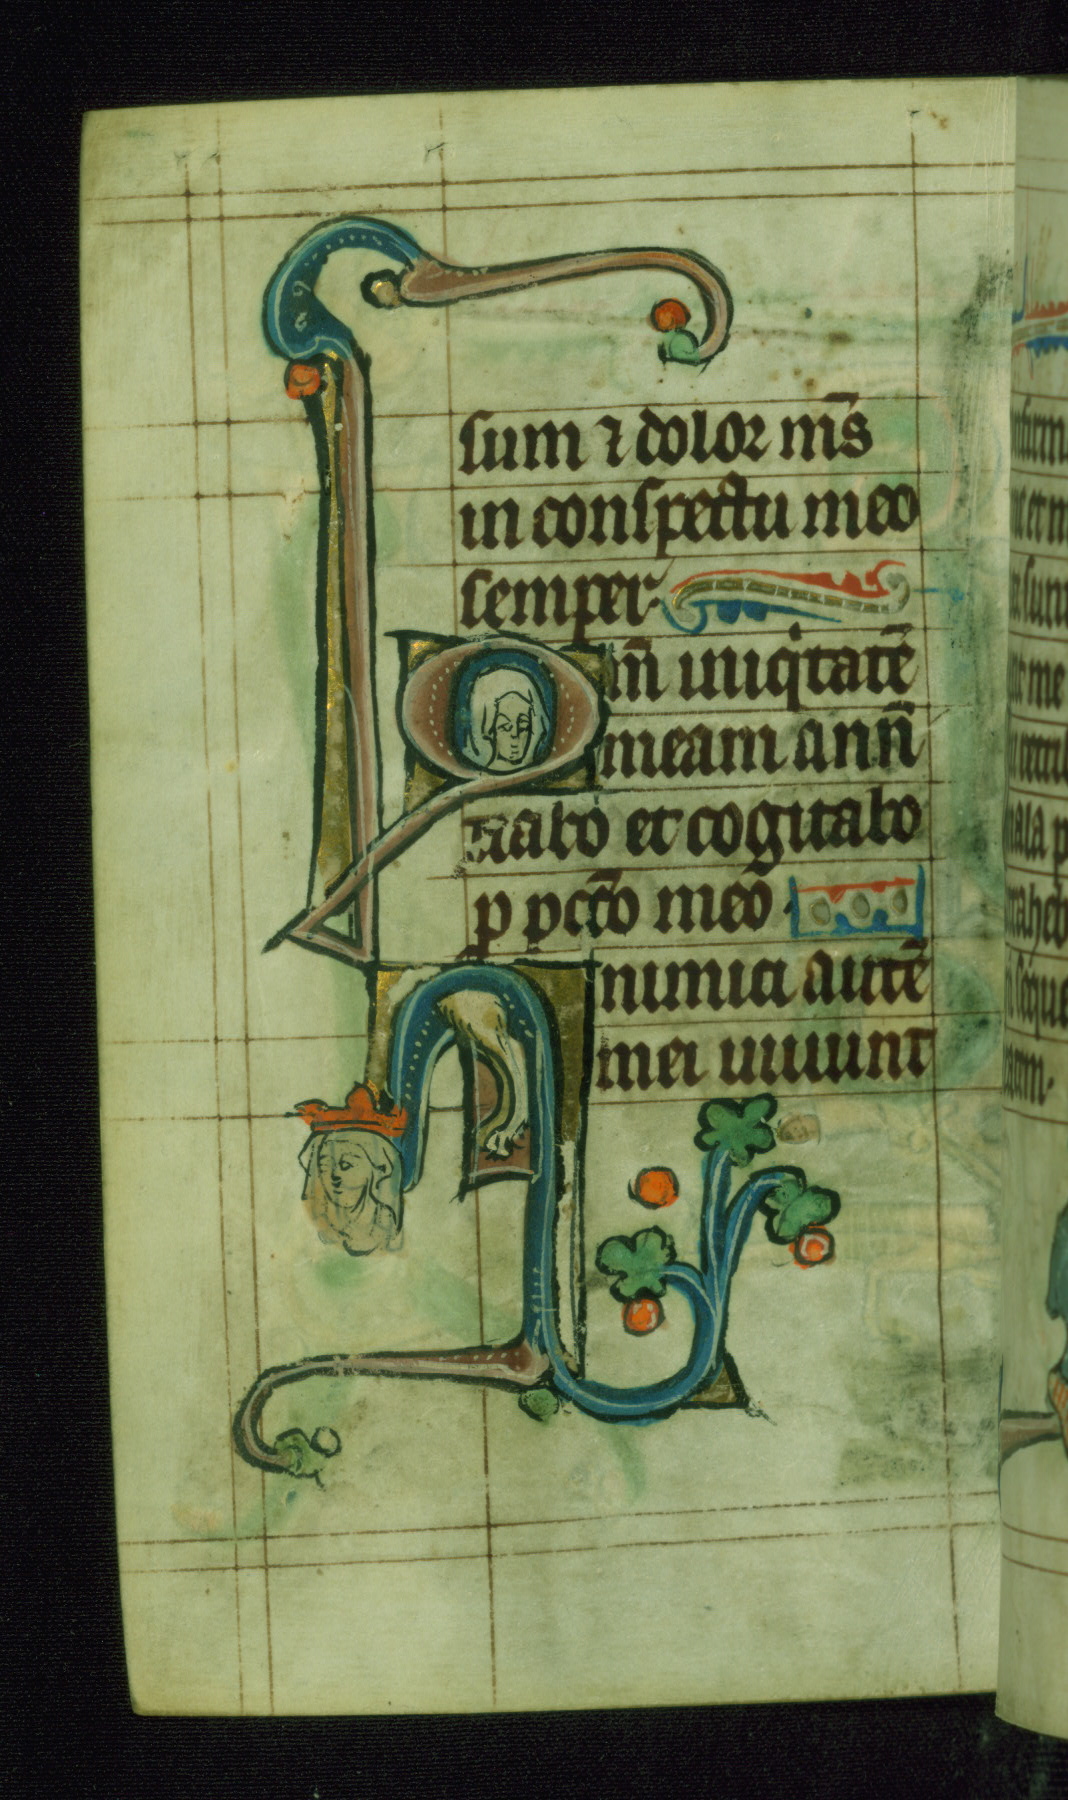 sum ⁊ dolor m̄s
in conspectu meo
semper·
Qm̄ iniq̇tatē
meam ann̄
tiabo et cogitabo
p pcc̄o meō·
Inimici autē
mei uiuunt